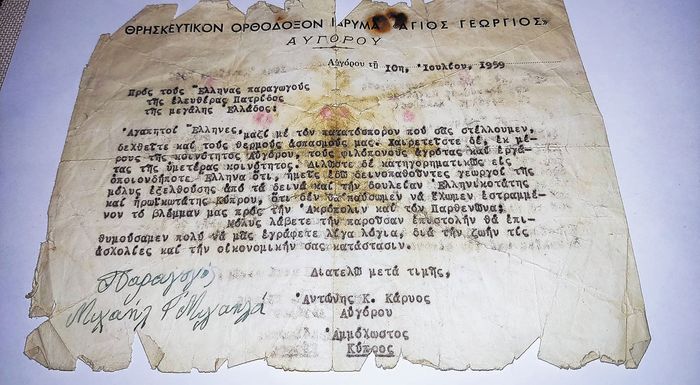 ΘΡΗΣΚΕΥΤΙΚΟΝ ΟΡΘΟΔΟΞΟΝ ΙΔΡΥΜΑ «ΑΓΙΟΣ ΓΕΩΡΓΙΟΣ»
ΑΥΓΟΡΟΥ
Αὐγόρου τῇ 10η, Ἰουλίου, 1959
Πρὸς τοὺς Ἕλληνας παραγωγοὺς
τῆς ἐλευθέρας Πατρίδος
τῆς μεγάλης Ἑλλάδος:
Ἀγαπητοὶ Ἕλληνες, μαζὶ μὲ τὸν πατατόσπορον ποὺ σᾶς στέλλουμεν,
δεχθεῖτε καὶ τοὺς θερμοὺς ἀσπασμούς μας. Χαιρετεῖστε δέ, ἐκ μέ-
ρους τῆς κοινότητος Αὐγόρου, τοὺς φιλόπονους ἀγρότας καὶ ἐργά-
τας τῆς ὑμετέρας κοινότητος. Δηλῶστε δὲ κατηγορηματικῶς εἰς
ὁποιονδήποτε Ἕλληνα ὅτι, ἡμεῖς ἐδῶ δεινοπαθοῦντες γεωργοὶ τῆς
μόλις ἐξελθούσης ἀπὸ τὰ δεινὰ καὶ τὴν δουλείαν Ἑλληνικοτάτης
καὶ ἡρωϊκωτάτης Κύπρου, ὅτι δὲν θὰ παύσωμεν νὰ ἔχωμεν ἐστραμμέ-
νον τὸ βλέμμαν μας πρὸς τὴν Ἀκρόπολιν καὶ τὸν Παρθενῶνα;
Μόλις λάβετε τὴν παροῦσαν ἐπιστολὴν θὰ ἐπι-
θυμούσαμεν πολὺ νὰ μᾶς ἐγράφετε λίγα λόγια, διὰ τὴν ζωήν τὶς
ἀσχολίες καὶ τὴν οἰκονομικήν σας κατάστασιν.
Διατελῶ μετὰ τιμῆς,
Παραγωγὸς
Μιχαὴλ Φ Μιχαηλᾶ
Ἀντώνης Κ. Κάρυος
Αὐγόρου
Ἀμμόχωστος
Κύπρος